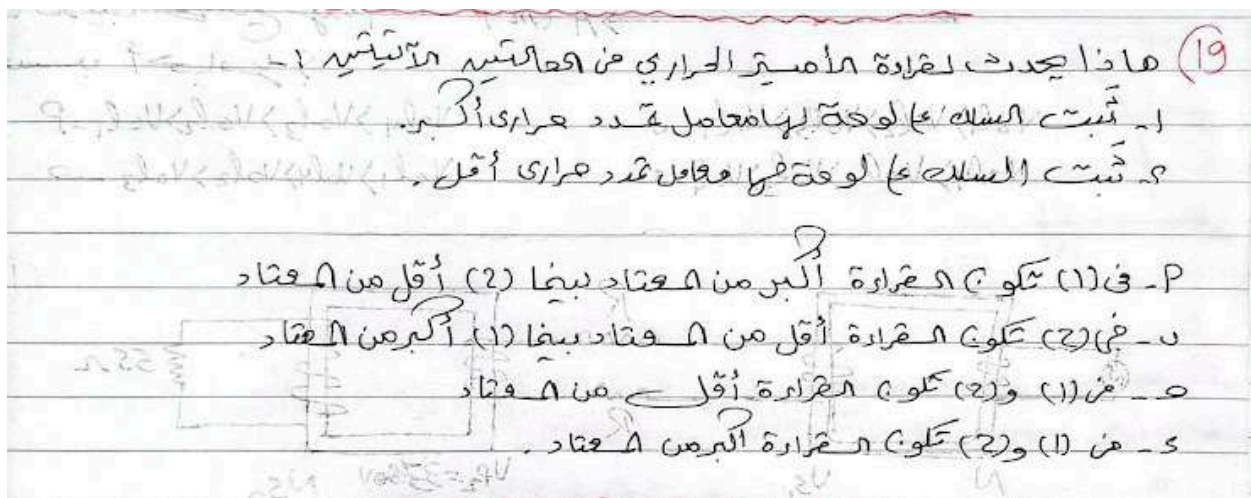 19 ماذا يحدث لقراءة الأميتر الحراري في الحالتين الآتيتين :-
1- ثُبت السلك ع لوحة لها معامل تمدد حرارى أكبر.
2- ثُبت السلك ع لوحة لها معامل تمدد حرارى أقل.
P- فى (1) تكون القراءة أكبر من المعتاد بينما (2) أقل من المعتاد
ں- في (2) تكون القراءة أقل من المعتاد بينما (1) أكبر من المعتاد
ص- فى (1) و (2) تكون القراءة أقل من المعتاد
ء- فى (1) و (2) تكون القراءة أكبر من المعتاد.